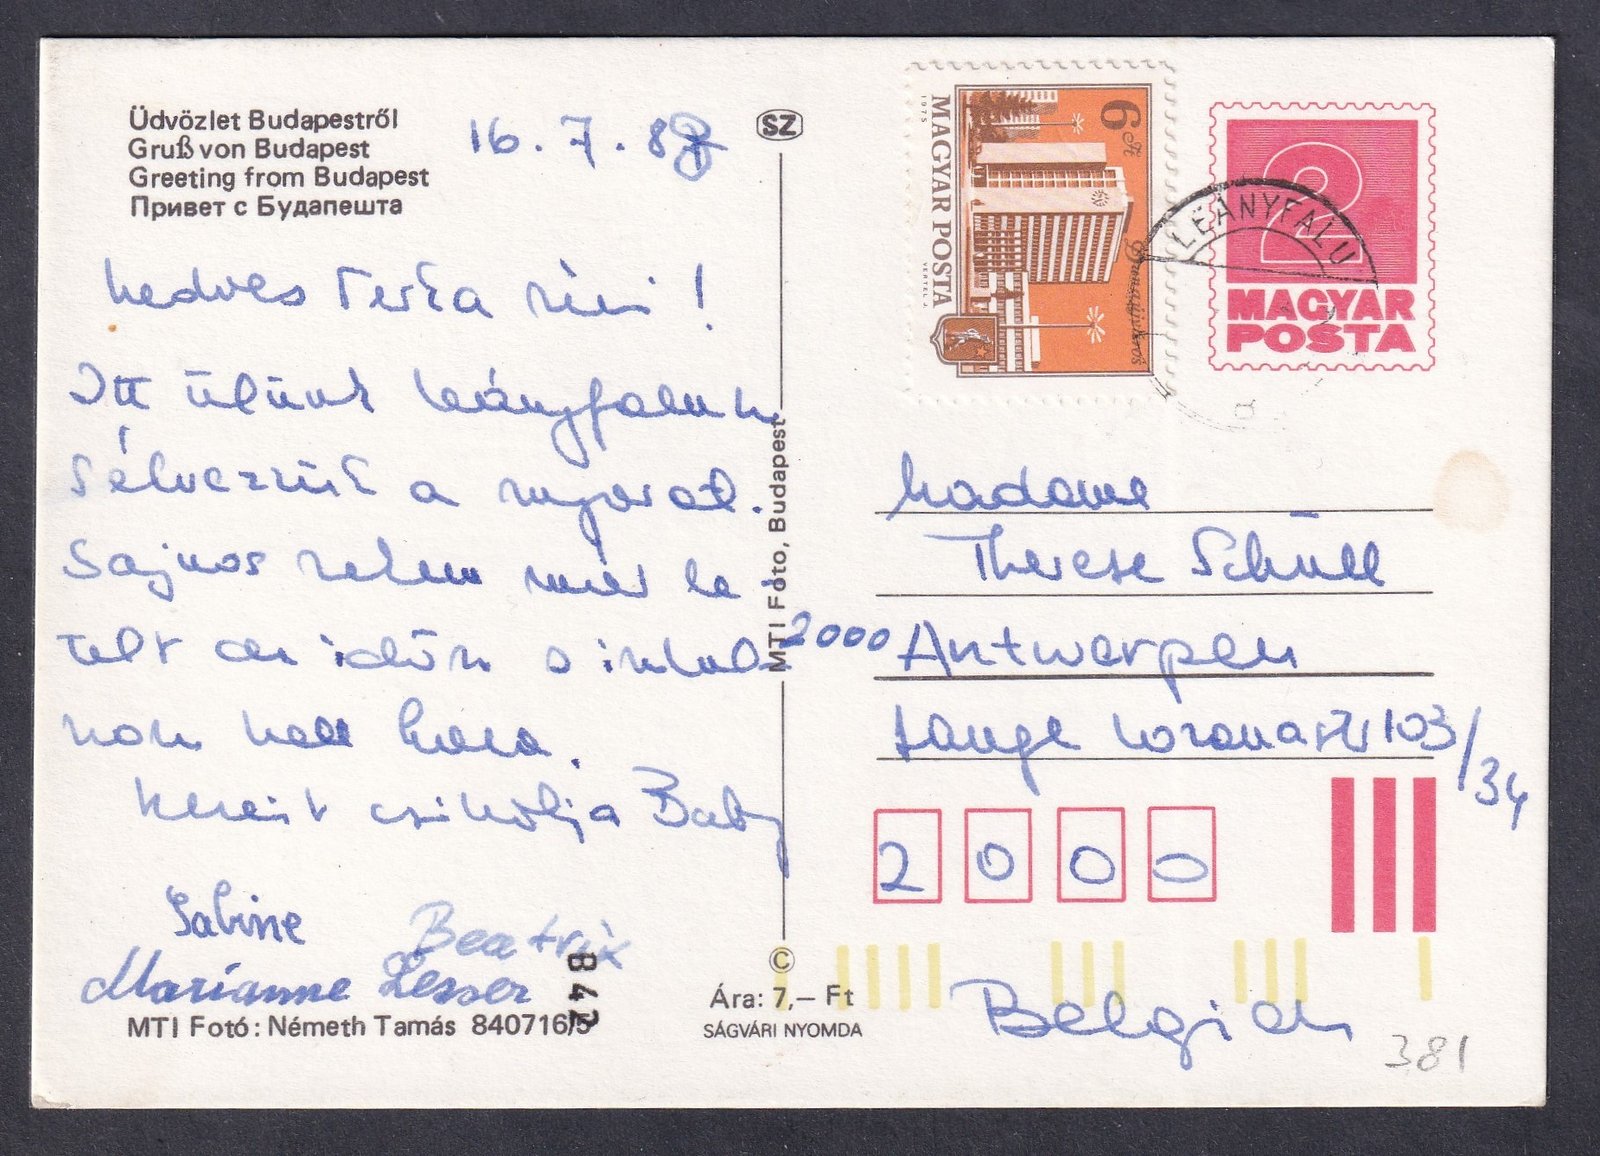 Üdvözlet Budapestről
Gruß von Budapest
Greeting from Budapest
Привет с Будапешта
16. 7. 88
SZ
kedves Terka néni!
Itt ülünk Leányfalun
s élvezzük a nyarat.
Sajnos velem már le
telt az időm s indulok
hon haza.
Kezeit csókolja Baby
Sabine
Beatrix
Marianne Lesser
842
MTI Fotó: Németh Tamás 840716/5
Ára: 7,— Ft
SÁGVÁRI NYOMDA
©
MTI Fotó, Budapest
6 Ft
MAGYAR POSTA
1975
VERTEL J.
Dunaújváros
2
MAGYAR
POSTA
LEÁNYFALU
Madame
Therese Schüll
2000 Antwerpen
Lange 103/34
2000
Belgien
381